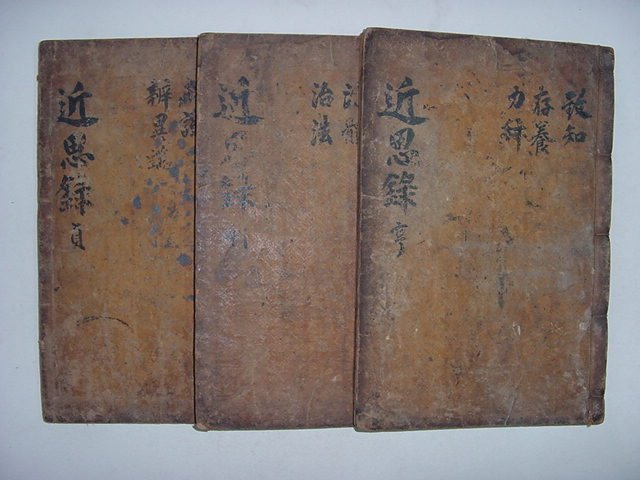 致知
存養
力
近思錄 亨
治法
近思錄
辨異端
近思錄 貞